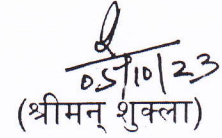 05/10/23
(श्रीमन् शुक्ला)